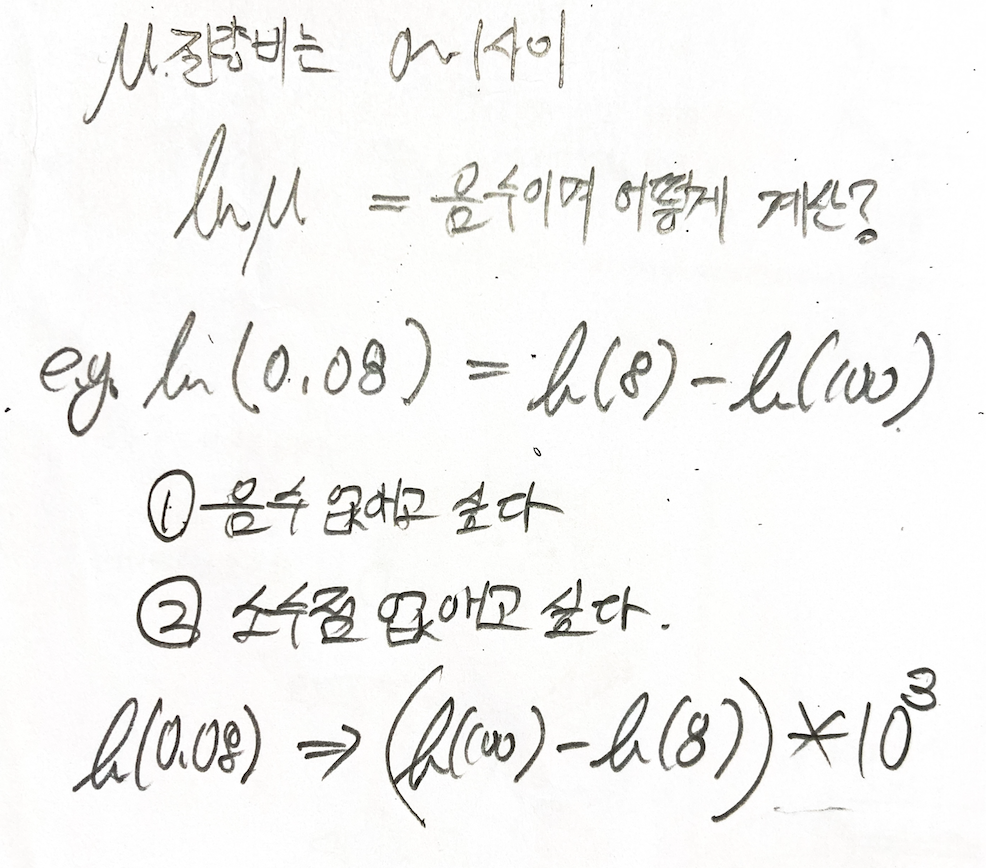 μ 질량비는 0~1사이
ln μ = 음수이며 어떻게 계산?
e.g. ln(0.08) = ln(8) - ln(100)
① 음수 없애고 싶다
② 소수점 없애고 싶다.
ln(0.08) ⇒ (ln(100) - ln(8)) * 10³